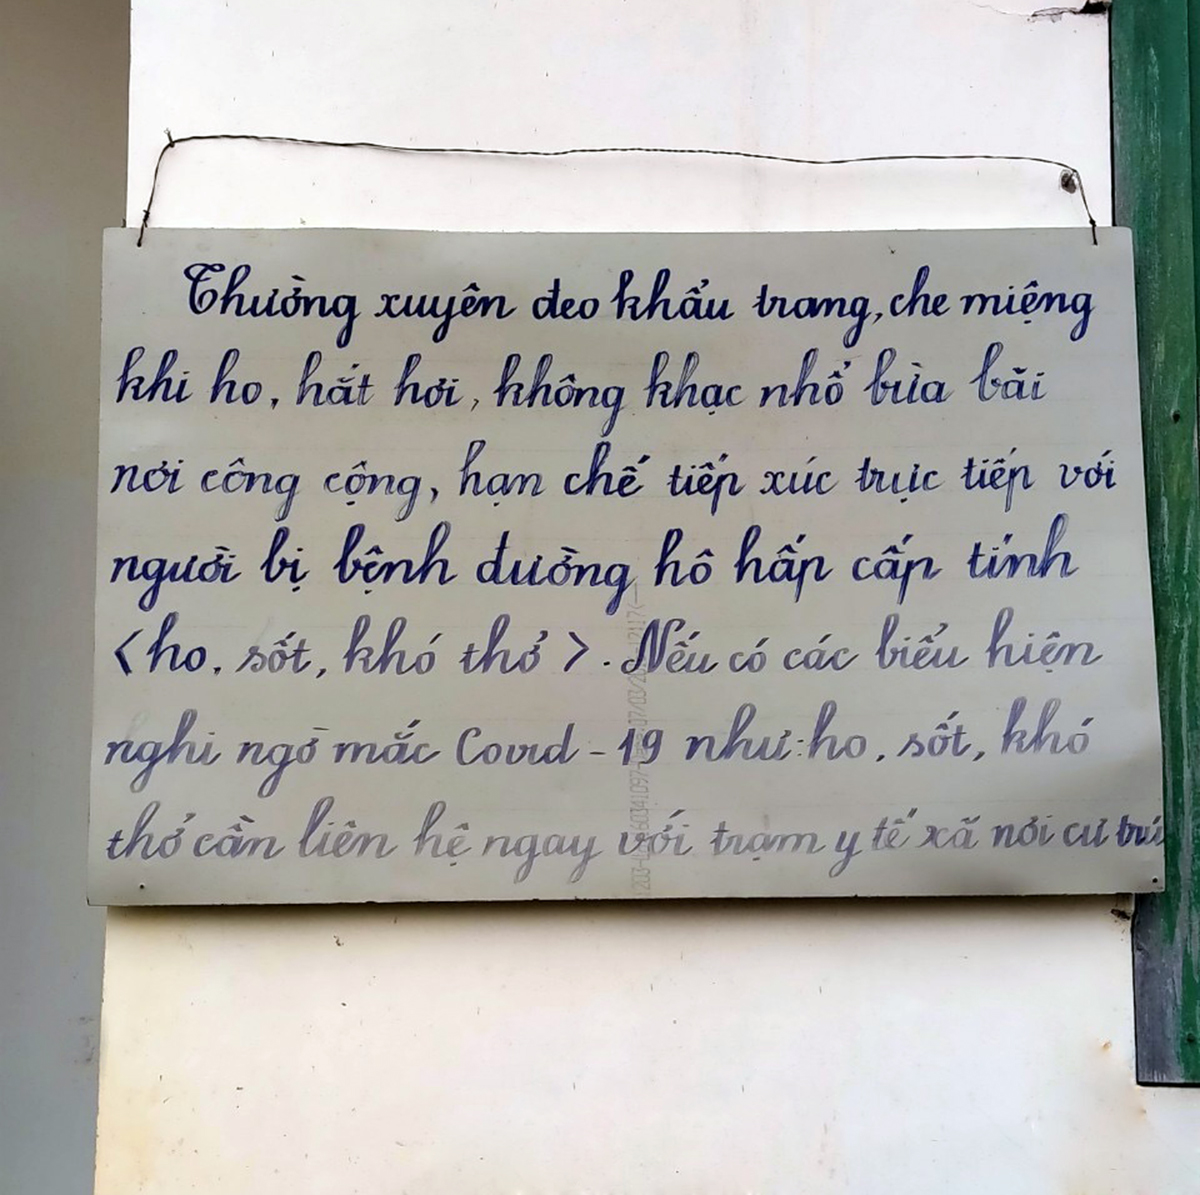 Thường xuyên đeo khẩu trang, che miệng
khi ho, hắt hơi, không khạc nhổ bừa bãi
nơi công cộng, hạn chế tiếp xúc trực tiếp với
người bị bệnh đường hô hấp cấp tính
<ho, sốt, khó thở>. Nếu có các biểu hiện
nghi ngờ mắc Covid - 19 như: ho, sốt, khó
thở cần liên hệ ngay với trạm y tế xã nơi cư trú